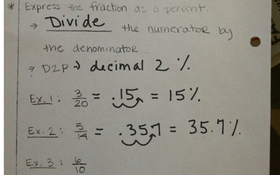 * Express the fraction as a percent.
→ Divide the numerator by
the denominator.
→ D2P → decimal 2 %
Ex. 1: 3/20 = .15 = 15%
Ex. 2: 5/14 = .357 = 35.7%
Ex. 3: 6/10